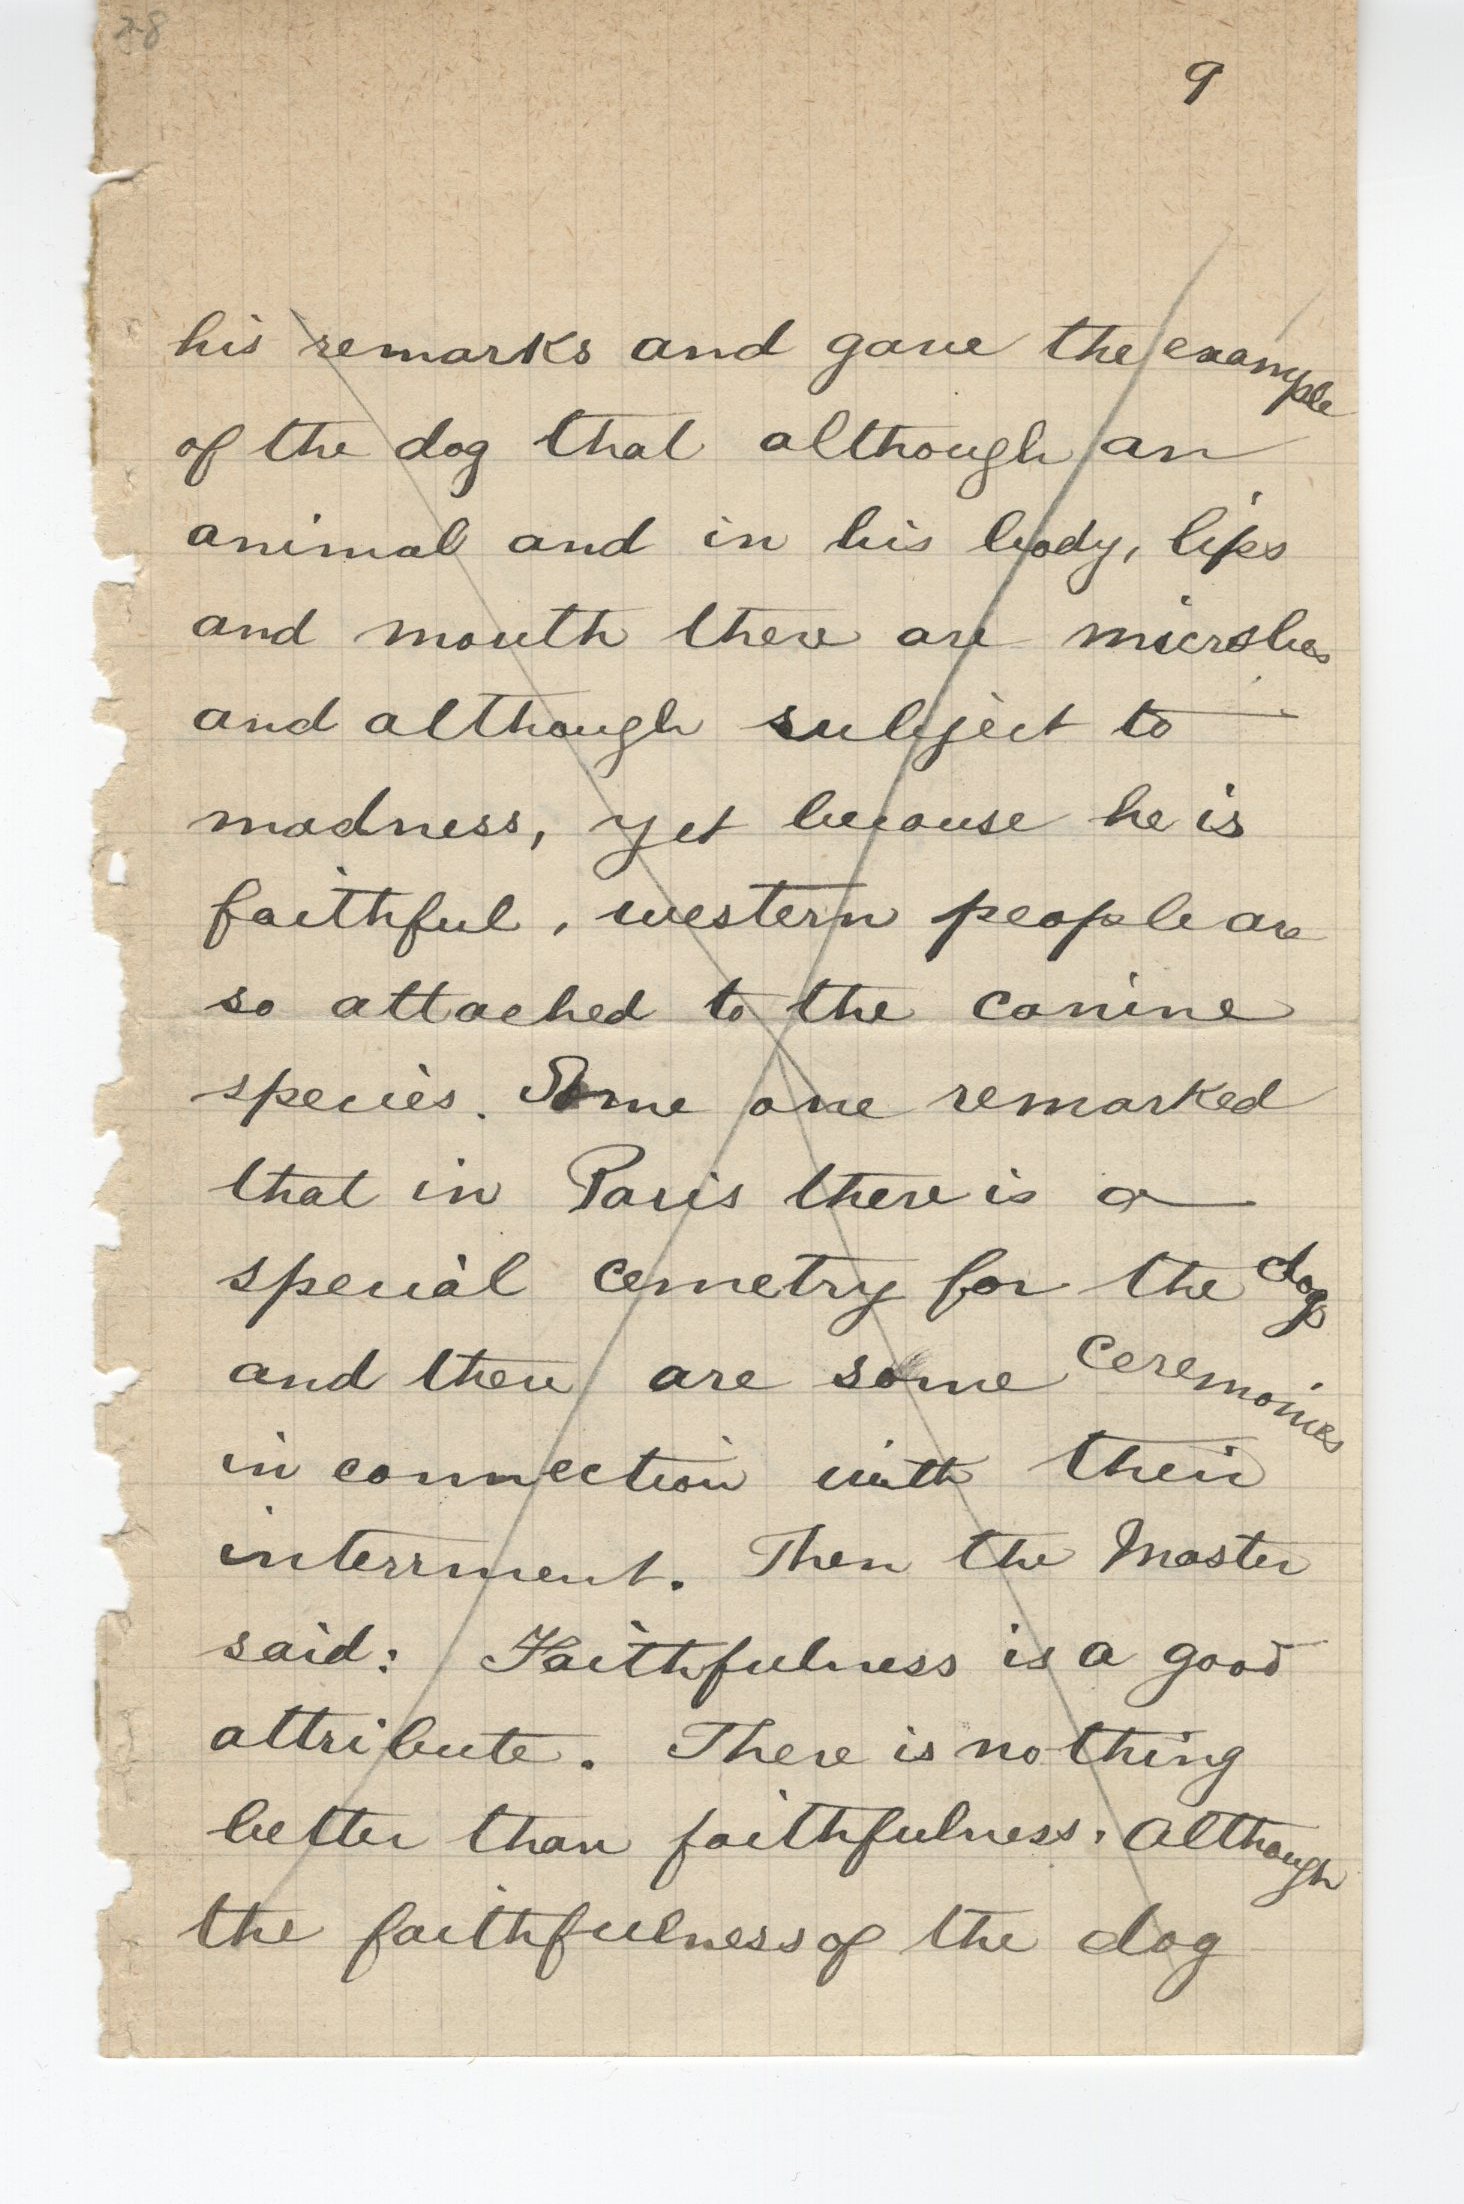 28
9
his remarks and gave the example
of the dog that although an
animal and in his body, lips
and mouth there are microbes
and although subject to
madness, yet because he is
faithful, western people are
so attached to the canine
species. Some one remarked
that in Paris there is a
special cemetry for the dogs
and there are some ceremoines
in connection with their
interrment. Then the Master
said: Faithfulness is a good
attribute. There is nothing
better than faithfulness. Although
the faithfulness of the dog